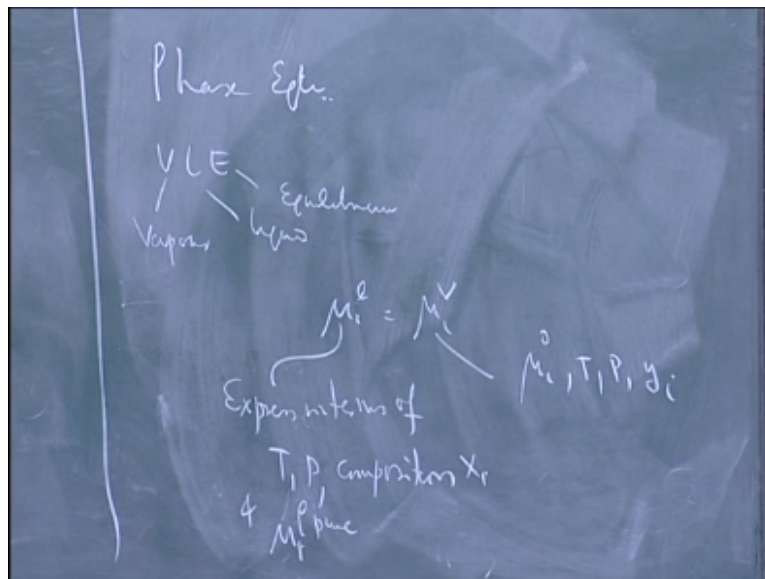 Phase Eqb.
V L E
Equilibrium
Vapour Liquid
μᵢˡ = μᵢᵛ
μᵢ⁰, T, P, yᵢ
Express in terms of
T, P, composition xᵢ
& μᵢˡ,ᵖᵘʳᵉ